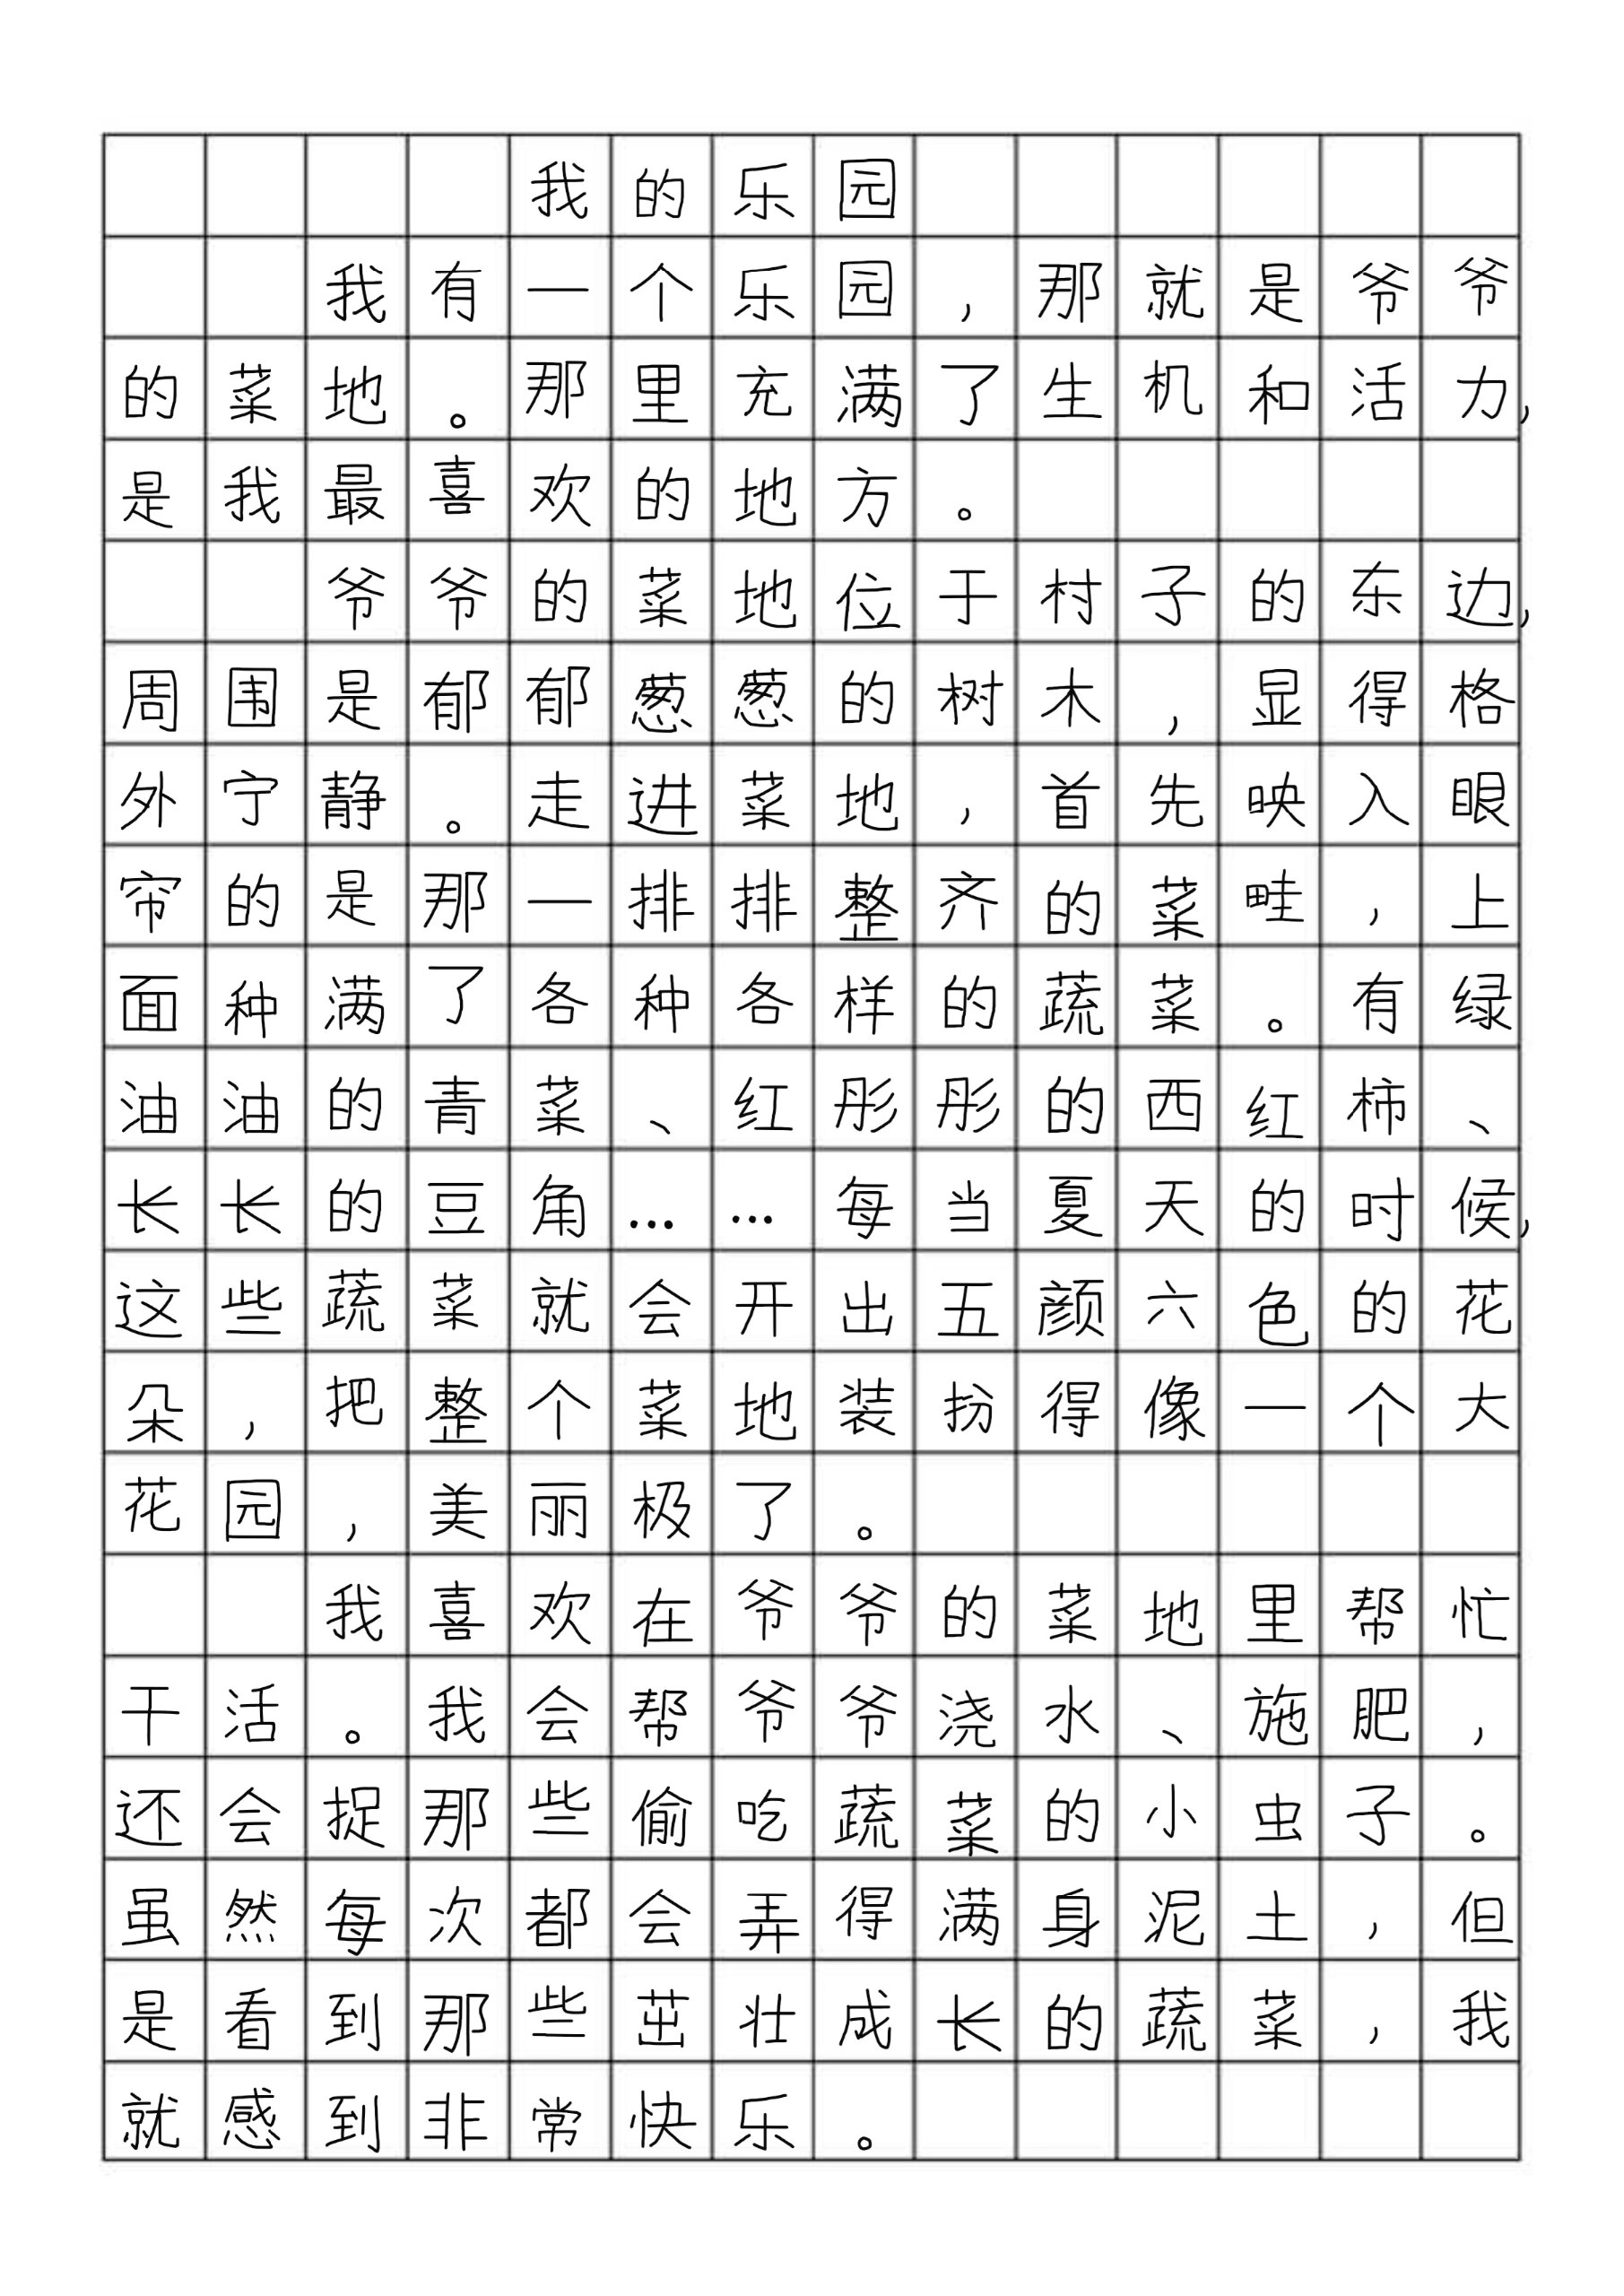 我的乐园
我有一个乐园，那就是爷爷
的菜地。那里充满了生机和活力，
是我最喜欢的地方。
爷爷的菜地位于村子的东边，
周围是郁郁葱葱的树木，显得格
外宁静。走进菜地，首先映入眼
帘的是那一排排整齐的菜畦，上
面种满了各种各样的蔬菜。有绿
油油的青菜、红彤彤的西红柿、
长长的豆角……每当夏天的时候，
这些蔬菜就会开出五颜六色的花
朵，把整个菜地装扮得像一个大
花园，美丽极了。
我喜欢在爷爷的菜地里帮忙
干活。我会帮爷爷浇水、施肥，
还会捉那些偷吃蔬菜的小虫子。
虽然每次都会弄得满身泥土，但
是看到那些茁壮成长的蔬菜，我
就感到非常快乐。